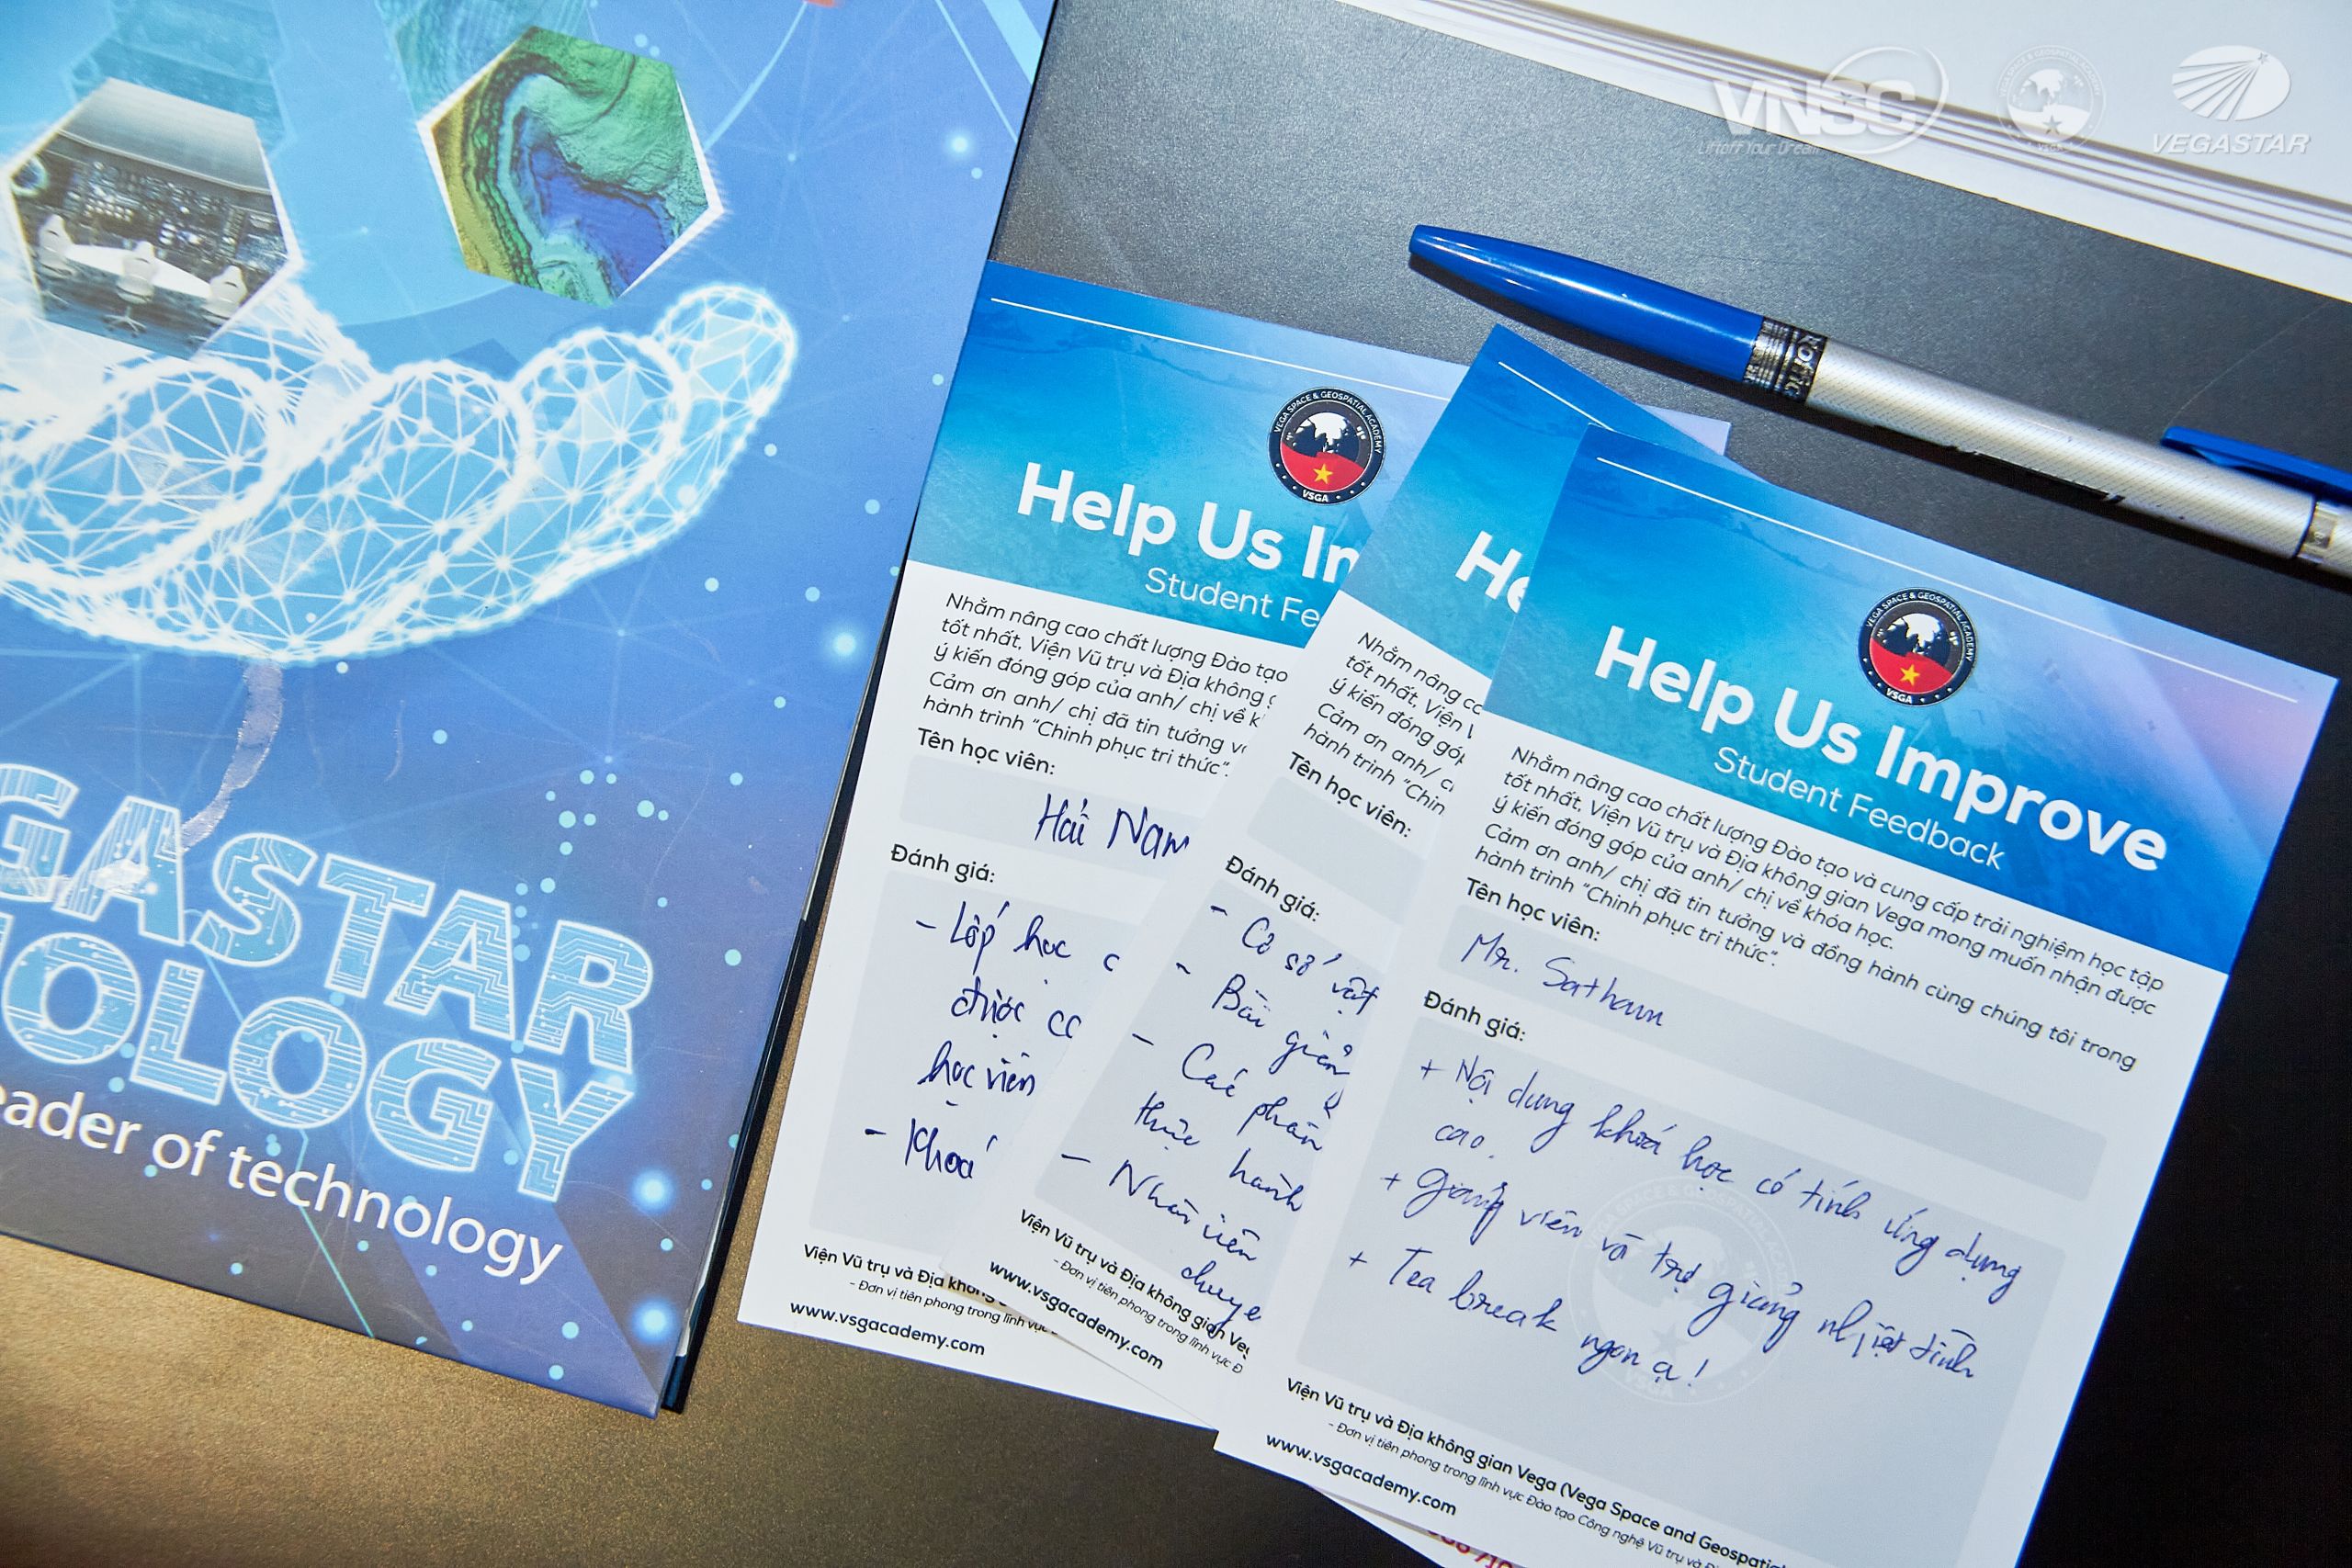 VNSC
Liftoff Your Dream
VEGASTAR
GASTAR
OLOGY
eader of technology
VEGA SPACE & GEOSPATIAL ACADEMY
VSGA
Help Us Im
Student Fe
Nhằm nâng cao chất lượng Đào tạo
tốt nhất, Viện Vũ trụ và Địa không g
ý kiến đóng góp của anh/ chị về k
Cảm ơn anh/ chị đã tin tưởng v
hành trình “Chinh phục tri thức”.
Tên học viên:
Hải Nam
Đánh giá:
- Lớp học c
được cc
học viên
- Khoá
Viện Vũ trụ và Địa không g
- Đơn vị tiên phong trong lĩnh vực
www.vsgacademy.com
He
Nhằm nâng c
tốt nhất, Viện V
ý kiến đóng góp
Cảm ơn anh/ c
hành trình “Chin
Tên học viên:
Đánh giá:
- Cơ sở vật
- Bài giảng
- Các phần
thực hành
- Nhân viên
chuyê
Viện Vũ trụ và Địa không gian Ve
- Đơn vị tiên phong trong lĩnh vực Đ
www.vsgacademy.com
VEGA SPACE & GEOSPATIAL ACADEMY
VSGA
Help Us Improve
Student Feedback
Nhằm nâng cao chất lượng Đào tạo và cung cấp trải nghiệm học tập
tốt nhất, Viện Vũ trụ và Địa không gian Vega mong muốn nhận được
ý kiến đóng góp của anh/ chị về khóa học.
Cảm ơn anh/ chị đã tin tưởng và đồng hành cùng chúng tôi trong
hành trình “Chinh phục tri thức”.
Tên học viên:
Mr. Satham
Đánh giá:
+ Nội dung khoá học có tính ứng dụng
cao.
+ Giảng viên và trợ giảng nhiệt tình
+ Tea break ngon ạ!
Viện Vũ trụ và Địa không gian Vega (Vega Space and Geospatial
- Đơn vị tiên phong trong lĩnh vực Đào tạo Công nghệ Vũ trụ và Đ
www.vsgacademy.com